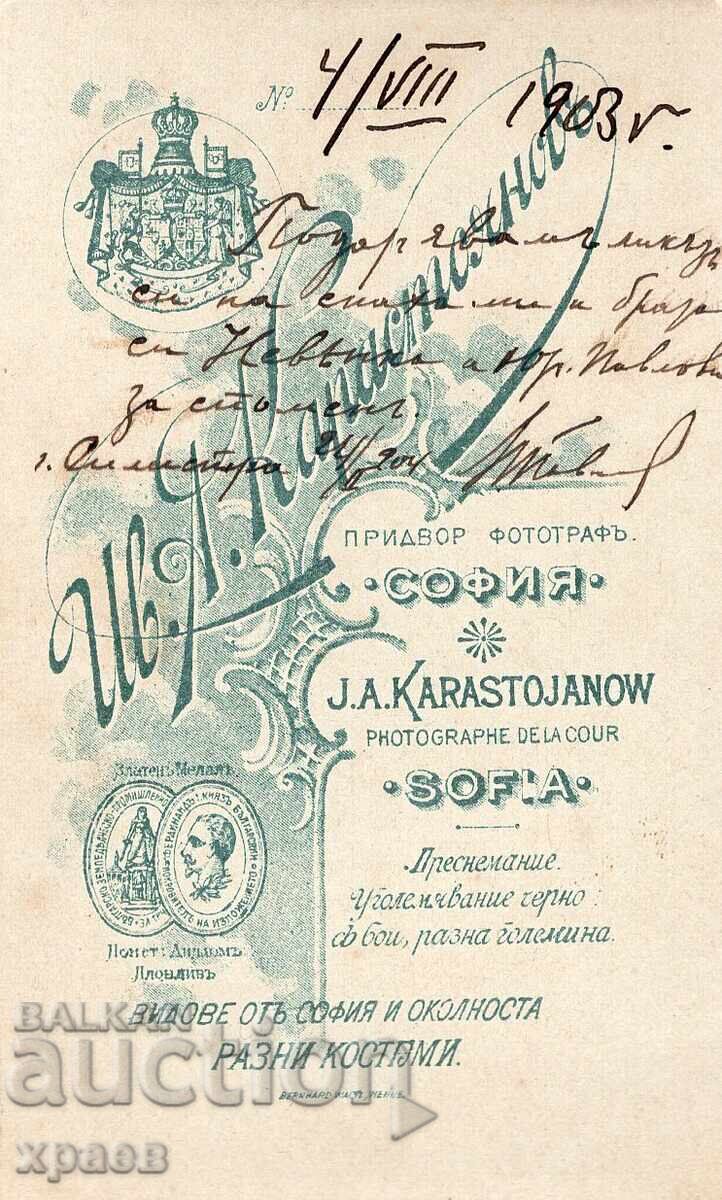 № 4/VIII 1903 г.
Подарявамъ ликътъ
си на снаха ми и
си Невѣнка и Юр. Павлови
за споменъ.
г. Силистра 904
Ив. А. Карастояновъ
ПРИДВОР ФОТОГРАФЪ.
СОФИЯ
J.A. KARASTOJANOW
PHOTOGRAPHE DE LA COUR
SOFIA
Златенъ Медалъ
Почет: Дипломъ
Пловдивъ
Преснемание.
Уголемявание черно:
съ бои, разна големина.
ВИДОВЕ ОТЪ СОФИЯ И ОКОЛНОСТА
РАЗНИ КОСТЮМИ.
BERNHARD WACHTL, VIENNE.
BALKAN
auction
храев